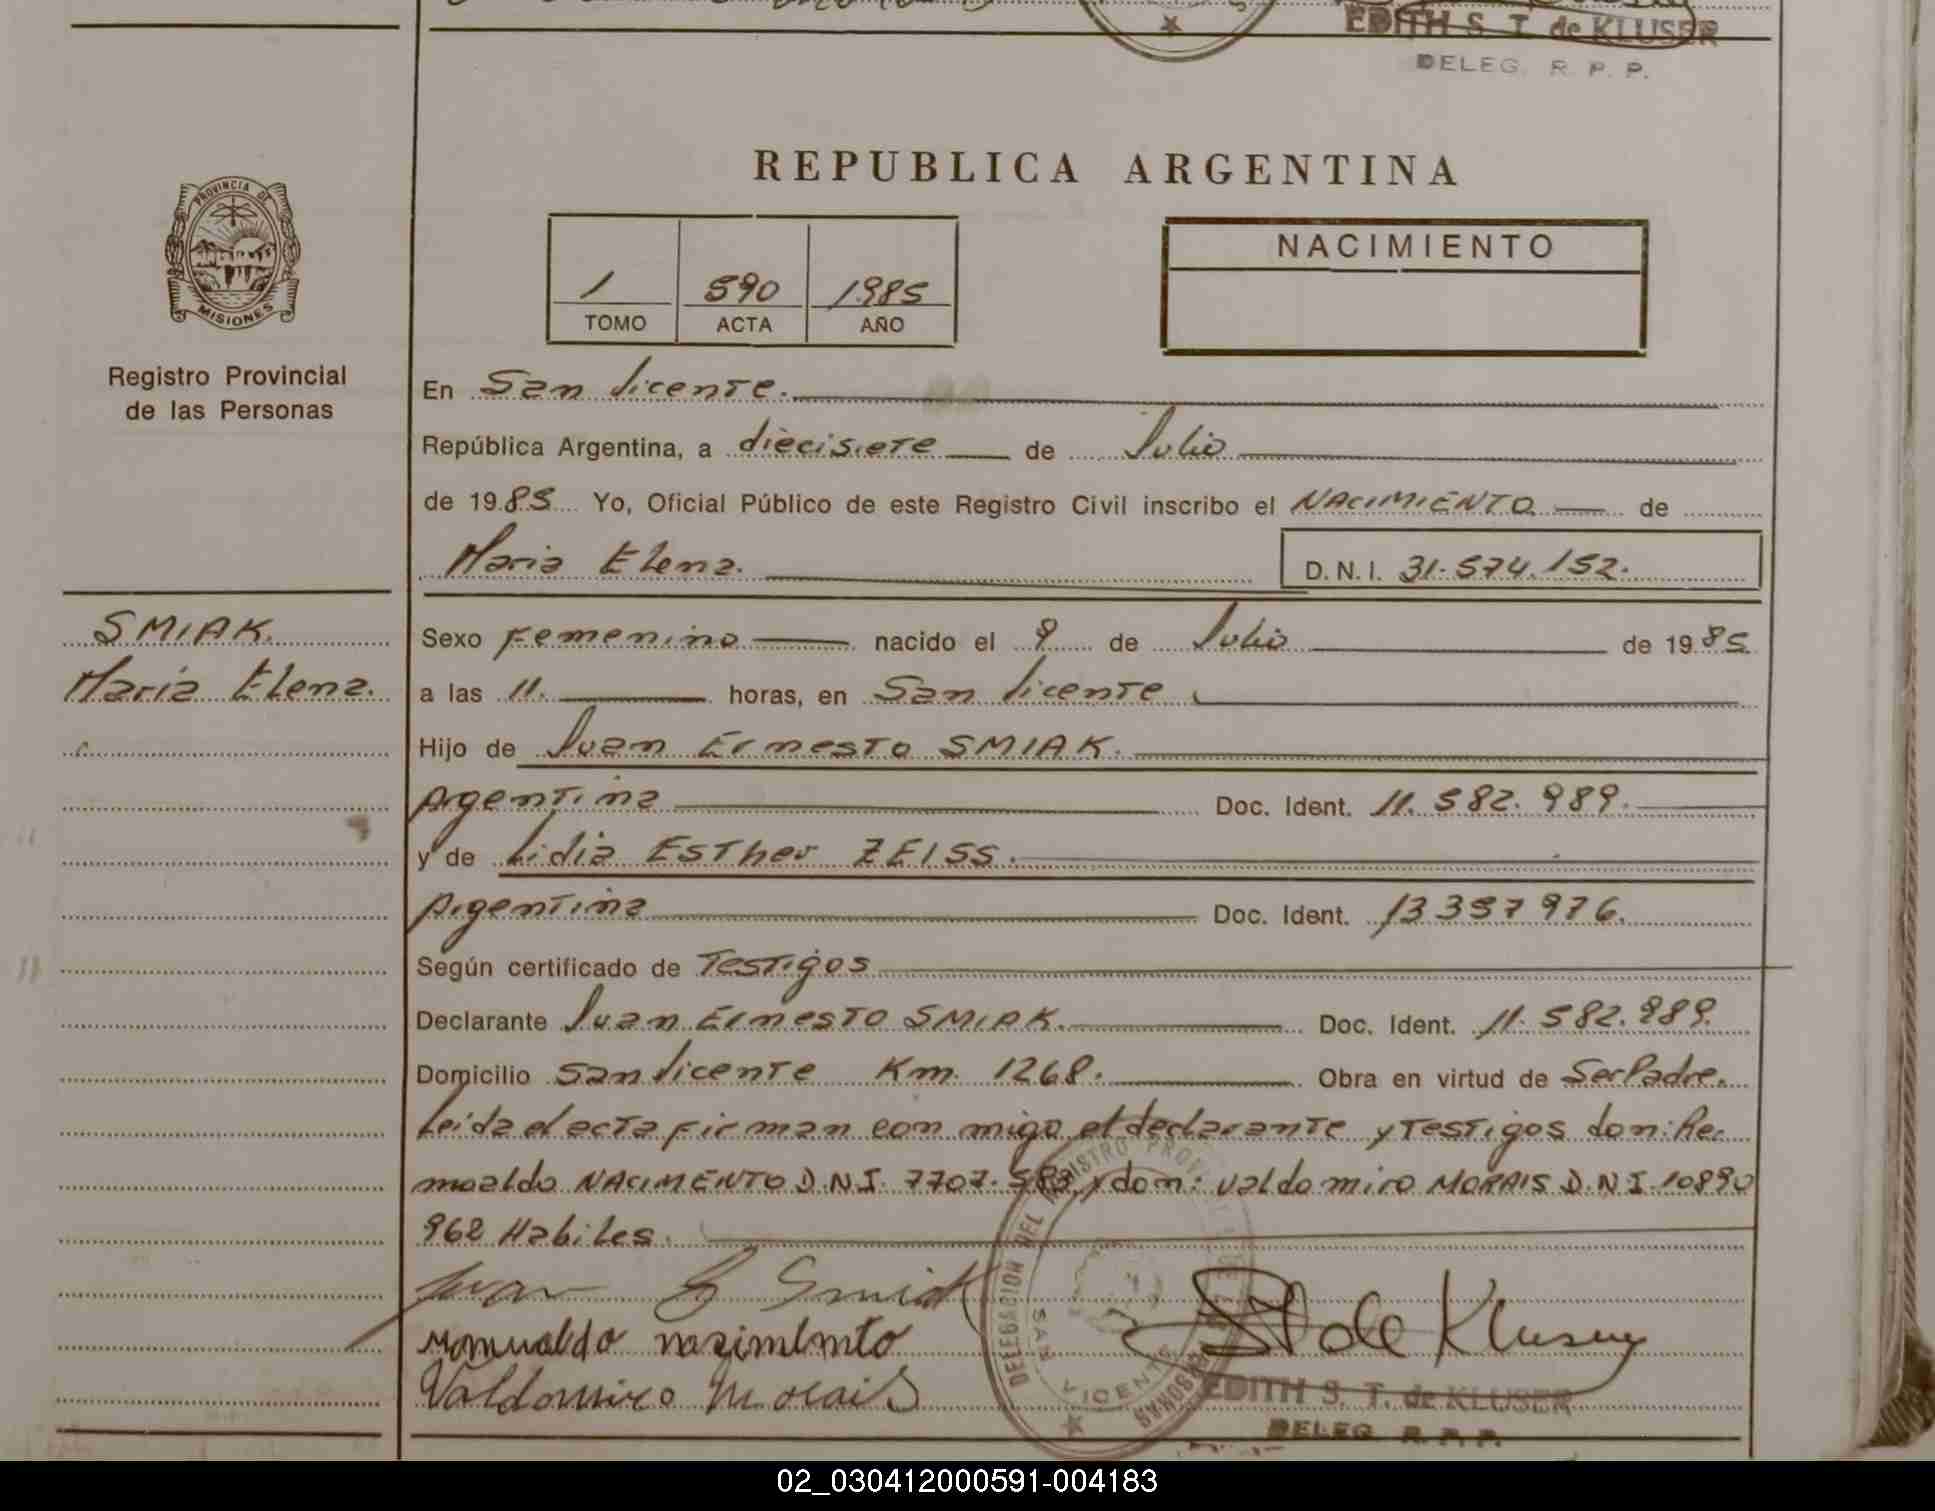 EDITH S. T. de KLUSER
DELEG. R. P. P.
REPUBLICA ARGENTINA
PROVINCIA DE
MISIONES
Registro Provincial
de las Personas
1 590 1985
TOMO ACTA AÑO
NACIMIENTO
En San Vicente.
República Argentina, a diecisiete de Julio
de 1985 Yo, Oficial Público de este Registro Civil inscribo el NACIMIENTO de
Maria Elena. D.N.I. 31.574.152.
SMIAK.
Maria Elena.
Sexo Femenino nacido el 9 de Julio de 1985
a las 11. horas, en San Vicente
Hijo de Juan Ernesto SMIAK.
Argentina Doc. Ident. 11.582.989.
y de Lidia Esther ZEISS.
Argentina Doc. Ident. 13 357 976.
Según certificado de Testigos
Declarante Juan Ernesto SMIAK. Doc. Ident. 11.582.989.
Domicilio San Vicente Km. 1268. Obra en virtud de Ser Padre.
Leida el acta firman con migo el declarante y Testigos don:
NACIMENTO D.N.I. 7707.583 y don: Valdomiro MORAIS D.N.I 10890
962 Habiles.
Juan E Smiak
romualdo nasimento
Valdomiro Morais
DELEGACION DEL REGISTRO PROVINCIAL DE LAS PERSONAS
SAN VICENTE
ST de Kluser
EDITH S. T. de KLUSER
DELEG. R. P. P.
02_030412000591-004183